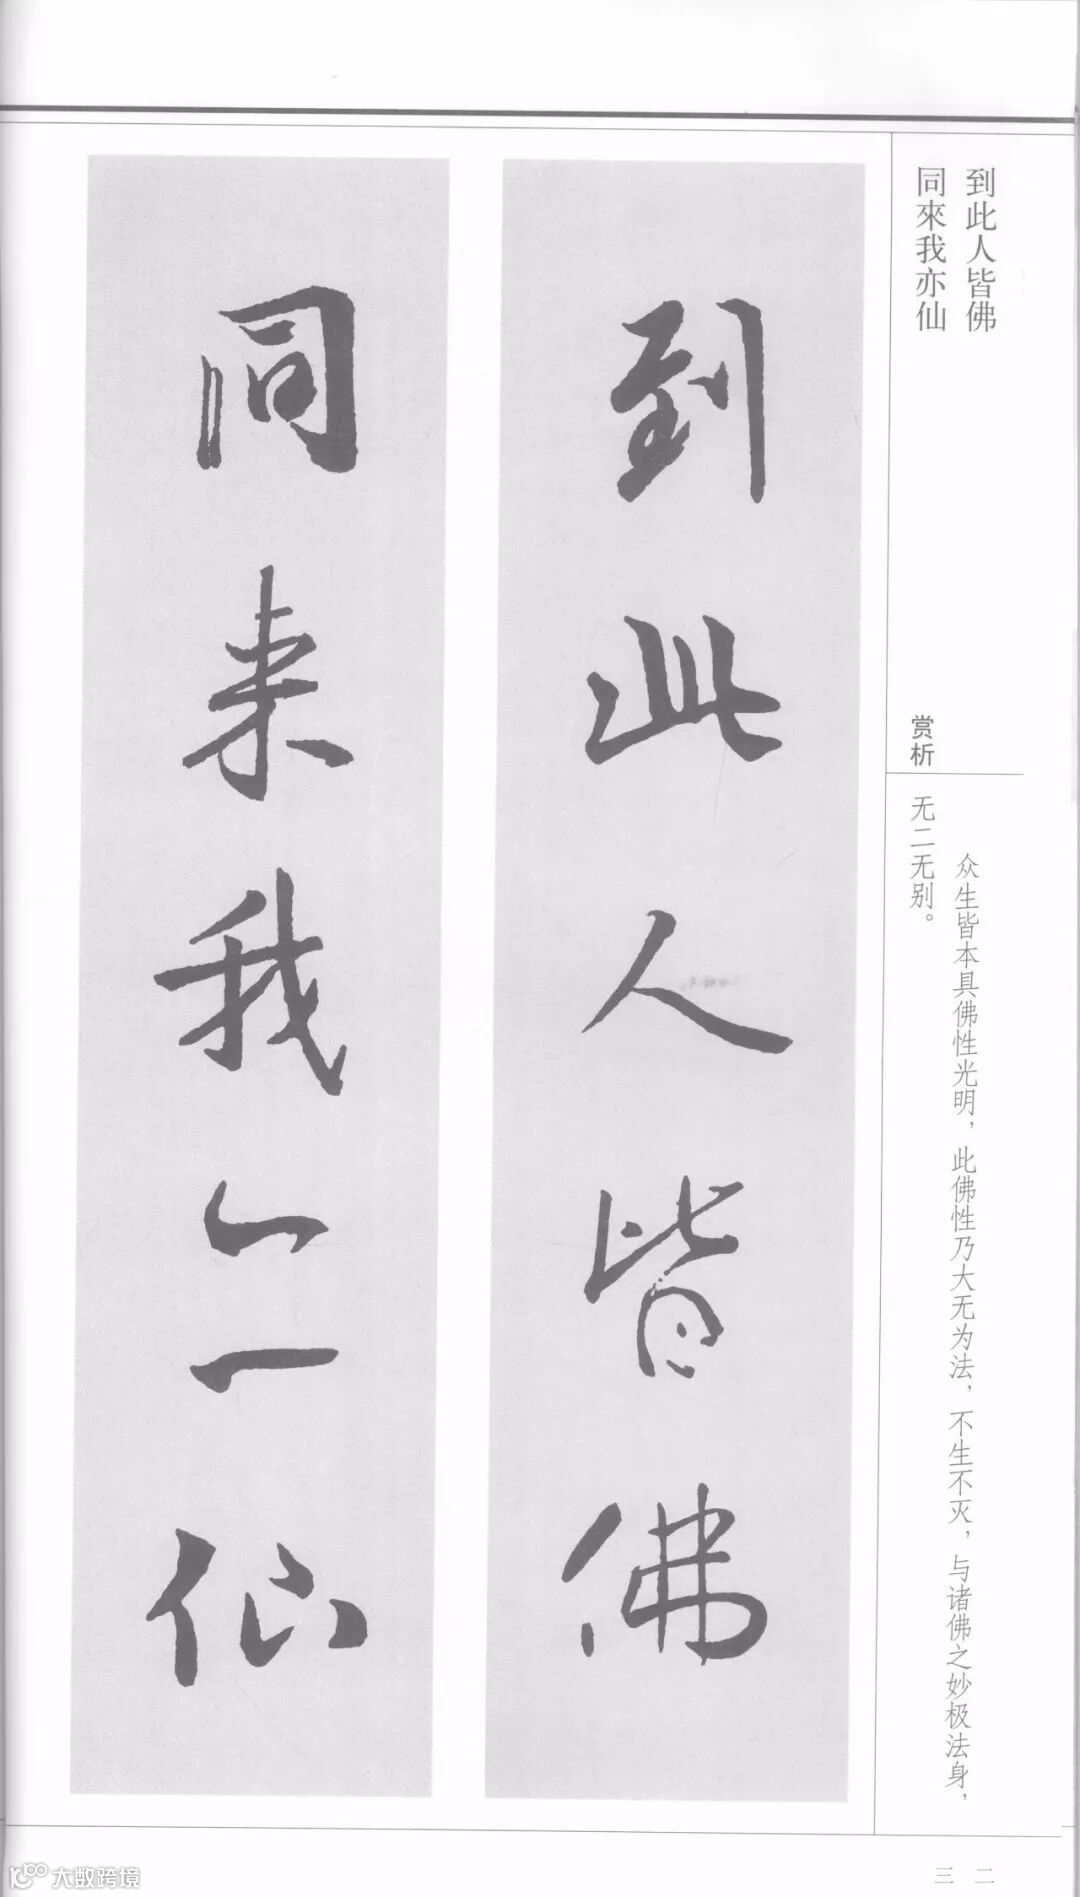 到此人皆佛
同來我亦仙
赏析
众生皆本具佛性光明，此佛性乃大无为法，不生不灭，与诸佛之妙极法身，
无二无别。
到此人皆佛
同来我亦仙
三二
大数跨境